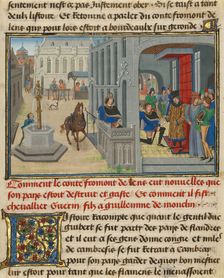 lentement nest ce pas Justement ober Or se taist a tant
deulx listoire Et retourne a parler du conte fromont de
lens que pour lors estoit a bourdeaulx sur gironde
Comment le conte fromont de lens eut nouuelles que
son pays estoit destruit et gaste Et comment il fist
cheuallier Guerin filz a guillemme de monclin
Listoire racompte que quant le gentil duc
guibert se fut party des pays de flandres
et il eut a ses gens donne conge et mile
de cambresis se fut retourne a Cambray
pour son pays garder de quoy on tenoit moult
sur et pour tant que les flamens le mieu assoduoi